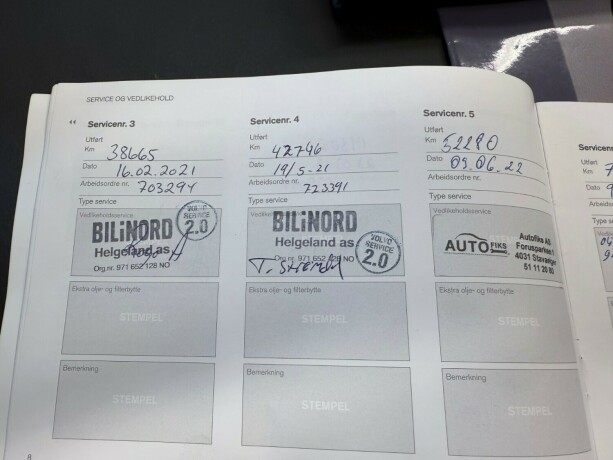 SERVICE OG VEDLIKEHOLD
Servicenr. 3
Utført
Km 38665
Dato 16.02.2021
Arbeidsordre nr. 703294
Type service
Vedlikeholdsservice
BILiNORD
Helgeland as
Org.nr. 971 652 128 NO
VOLVO
SERVICE
2.0
Ekstra olje- og filterbytte
STEMPEL
Bemerkning
STEMPEL
Servicenr. 4
Utført
Km 42746
Dato 19/5-21
Arbeidsordre nr. 723391
Type service
BILiNORD
Helgeland as
Org.nr. 971 652 128 NO
VOLVO
SERVICE
2.0
Ekstra olje- og filterbytte
STEMPEL
Bemerkning
STEMPEL
Servicenr. 5
Utført
Km 52280
Dato 09.06.22
Arbeidsordre nr.
Type service
Vedlikeholdsservice
AUTOFIKS
Autofiks AS
Forusparken
4031 Stavanger
51 11 20 80
Ekstra olje- og filterbytte
STEMPEL
Bemerkning
STEMPEL
Utført
Km
Dato
Type
8